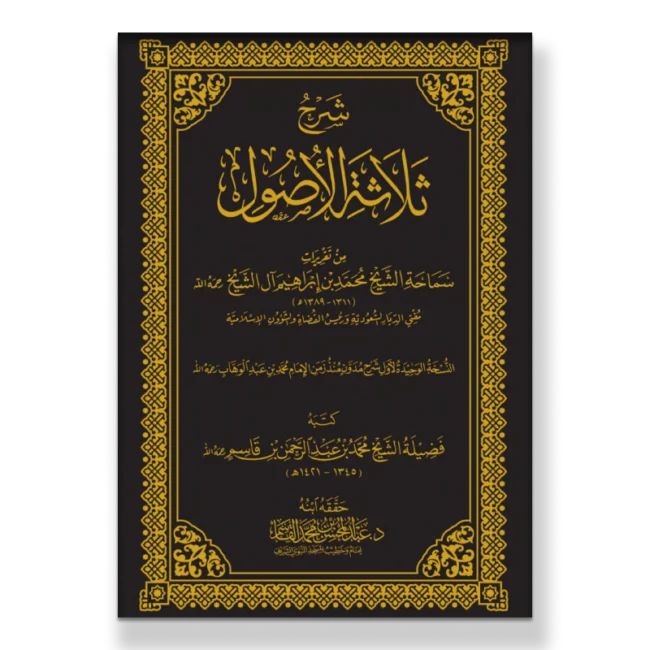 شَرْحُ
ثَلَاثَةِ الْأُصُولِ
مِنْ تَقْرِيرَاتِ
سَمَاحَةِ الشَّيْخِ مُحَمَّدِ بْنِ إِبْرَاهِيمَ آلِ الشَّيْخِ رحمه الله
(١٣١١ - ١٣٨٩ه)
مُفْتِي الدِّيَارِ السُّعُودِيَّةِ وَرَئِيسِ القُضَاةِ وَالشُّؤُونِ الإِسْلَامِيَّةِ
النُّسْخَةُ الوَحِيدَةُ لِأَوَّلِ شَرْحٍ مُدَوَّنٍ مُنْذُ زَمَنِ الإِمَامِ مُحَمَّدِ بْنِ عَبْدِ الوَهَّابِ رحمه الله
كَتَبَهُ
فَضِيلَةُ الشَّيْخِ مُحَمَّدُ بْنُ عَبْدِ الرَّحْمَنِ بْنِ قَاسِمٍ رحمه الله
(١٣٤٥ - ١٤٢١هـ)
حَقَّقَهُ ابْنُهُ
د. عَبْدُ الْمُحْسِنِ بْنُ مُحَمَّدٍ الْقَاسِمُ
إمام وخطيب المسجد النبوي الشريف